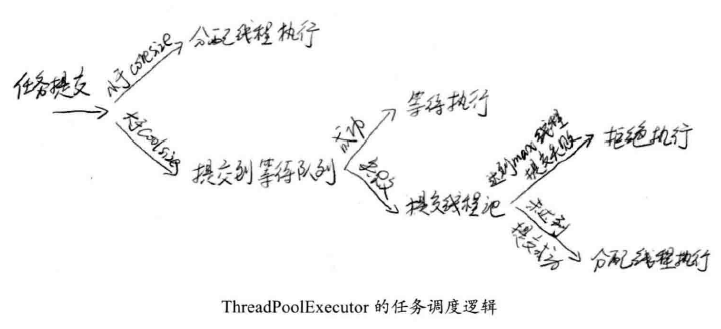 任务提交
小于coresize
分配线程执行
大于coolsize
提交到等待队列
成功
等待执行
失败
提交线程池
达到max线程
提交失败
拒绝执行
未达到
提交成功
分配线程执行
ThreadPoolExecutor 的任务调度逻辑